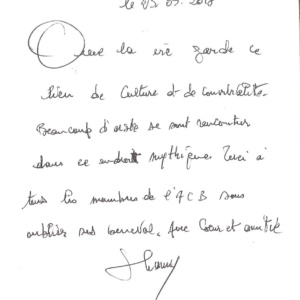 le 2/2 09. 2018
Que la vie garde ce
lieu de Culture et de convivialité.
Beaucoup d' se sont rencontrés
dans ce endroit mythique Merci à
tous les membres de l'ACB sans
oublier ses bénévol. Avec Cœur et amitié